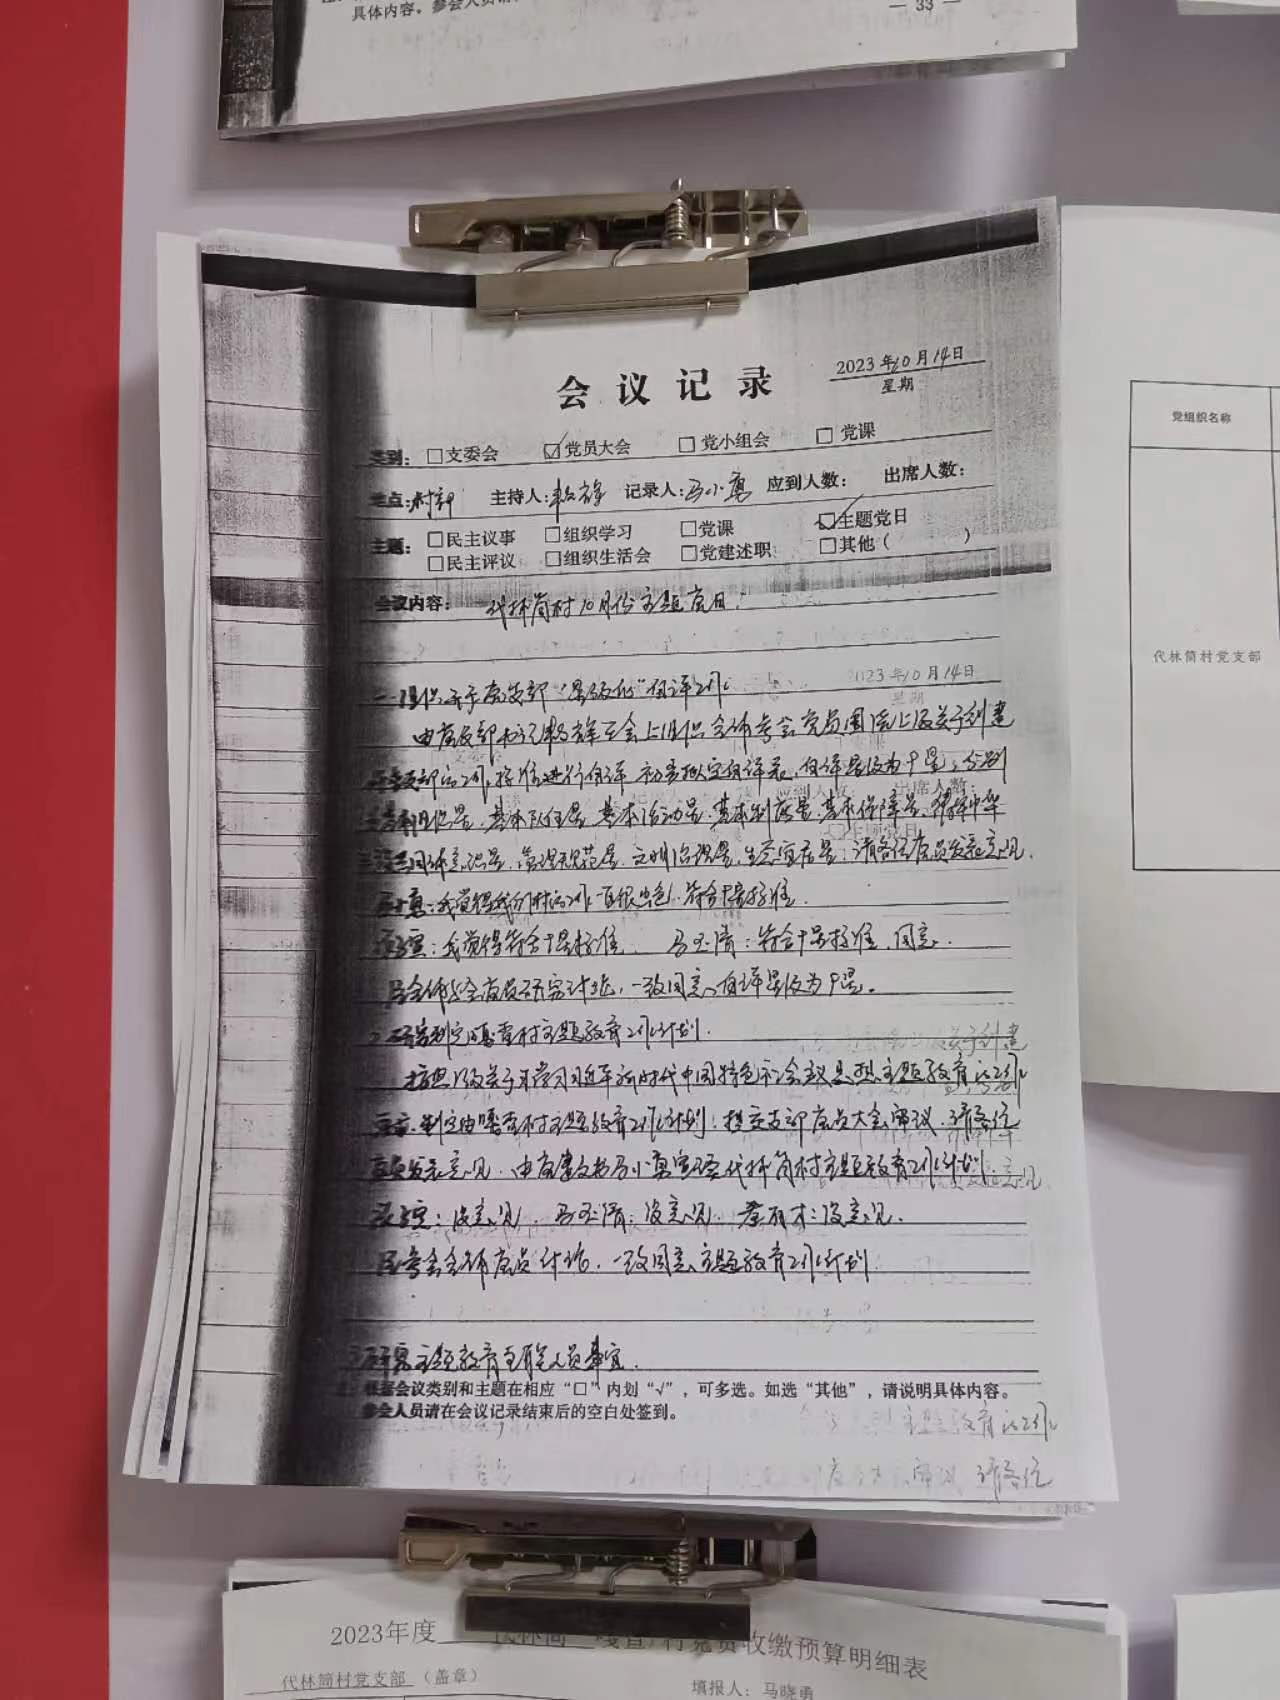 具体内容。参会人员请
— 33 —
会议记录
2023年10月14日
星期
类别：□支委会 ☑党员大会 □党小组会 □党课
地点：村部 主持人： 记录人：马小勇 应到人数： 出席人数：
主题：□民主议事 □组织学习 □党课 ☑主题党日
□民主评议 □组织生活会 □党建述职 □其他（ ）
会议内容：代林筒村10月份主题党日
2023年10月14日
星期
一、组织开展党支部“星级化”自评工作
由党支部书记 在会上组织全体参会党员围绕上级关于创建
支部的工作标准进行自评 初步拟定自评表，自评星级为9星，分别
基本组织星、基本队伍星、基本活动星、基本制度星、基本保障星、铸牢中华
民族共同体意识星、管理规范星、文明治理星、生态宜居星；请各位党员发表意见。
：我觉得我们村的工作一直很出色，符合十星标准。
：我觉得符合十星标准。 马玉清：符合十星标准，同意。
经全体与会党员研究讨论，一致同意，自评星级为9星。
2、研究制定嘎查村主题教育工作计划。
按照上级关于学习习近平新时代中国特色社会主义思想主题教育的工作
，制定出嘎查村主题教育工作计划，提交支部党员大会审议，请各位
党员发表意见。由党建文书马小勇宣读代林筒村主题教育工作计划。
：没意见。 马玉清：没意见。 ：没意见。
经参会全体党员讨论，一致同意主题教育工作计划
3、研究主题教育 人员事宜。
注：根据会议类别和主题在相应“□”内划“√”，可多选。如选“其他”，请说明具体内容。
参会人员请在会议记录结束后的空白处签到。
主题教育的工作
党员大会审议，请各位
党组织名称
代林筒村党支部
2023年度 村党费收缴预算明细表
代林筒村党支部 （盖章） 填报人：马晓勇